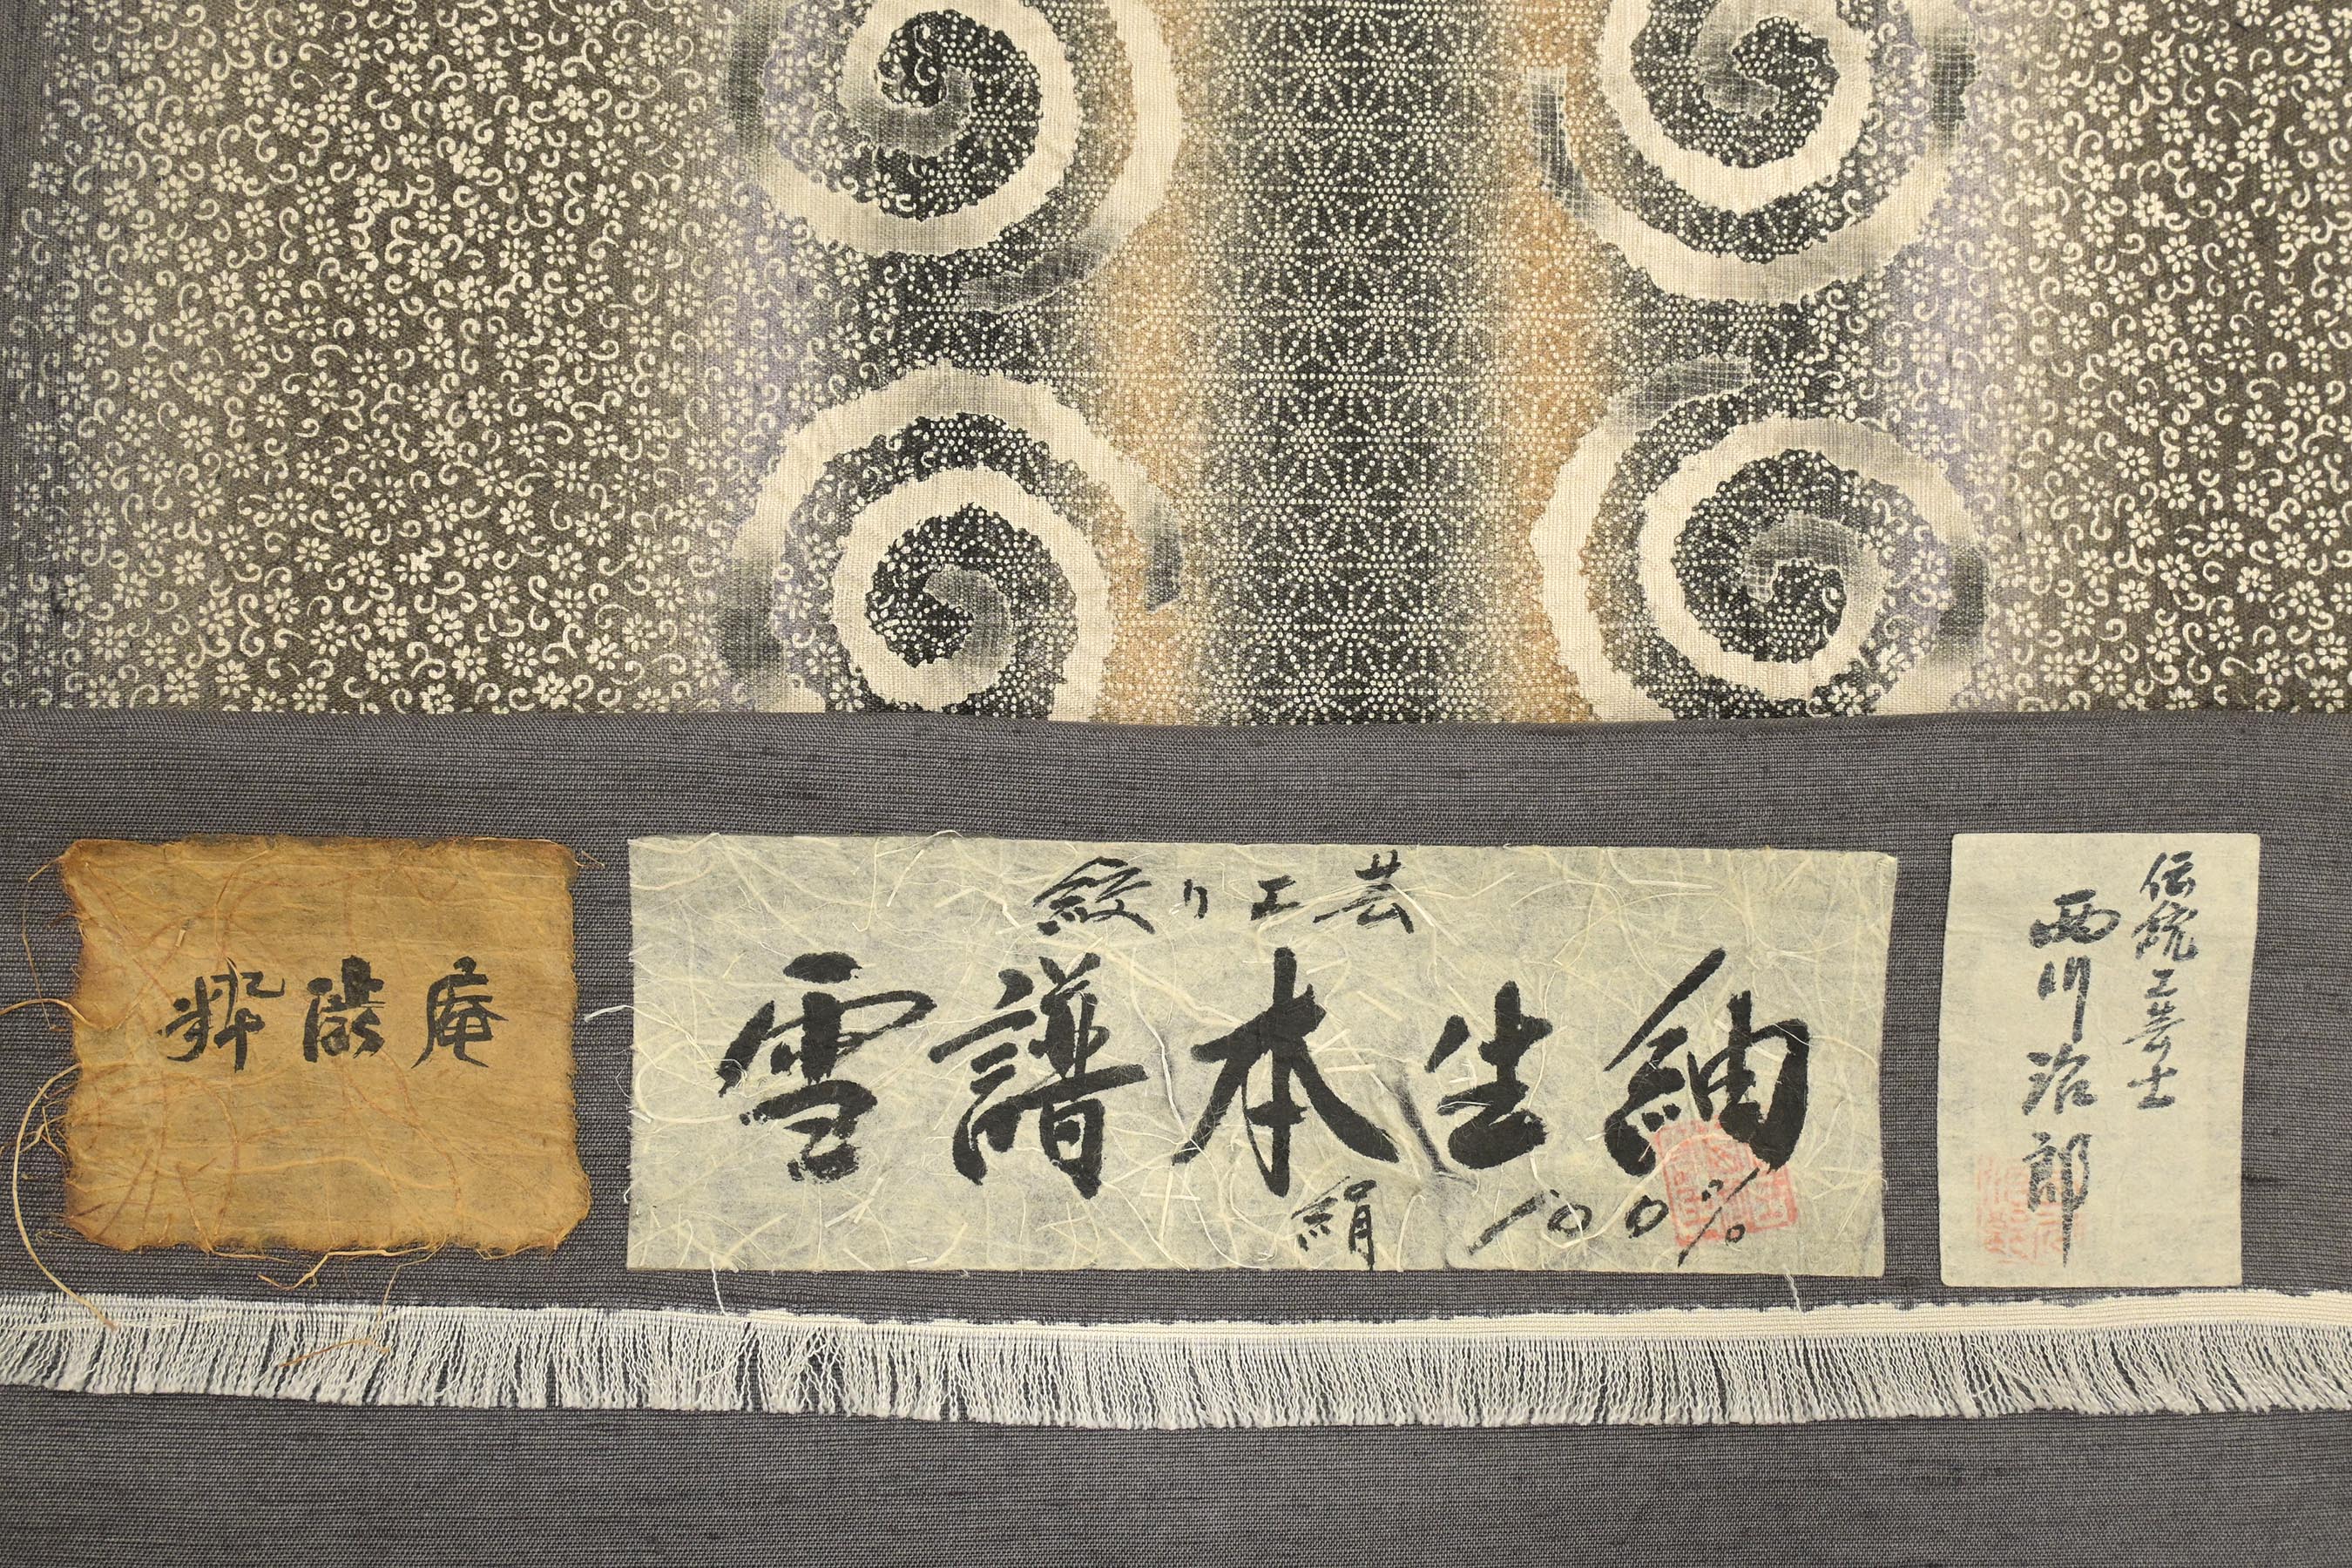 絞り工芸
雪譜本生紬
絹100%
伝統工芸士
西川治郎